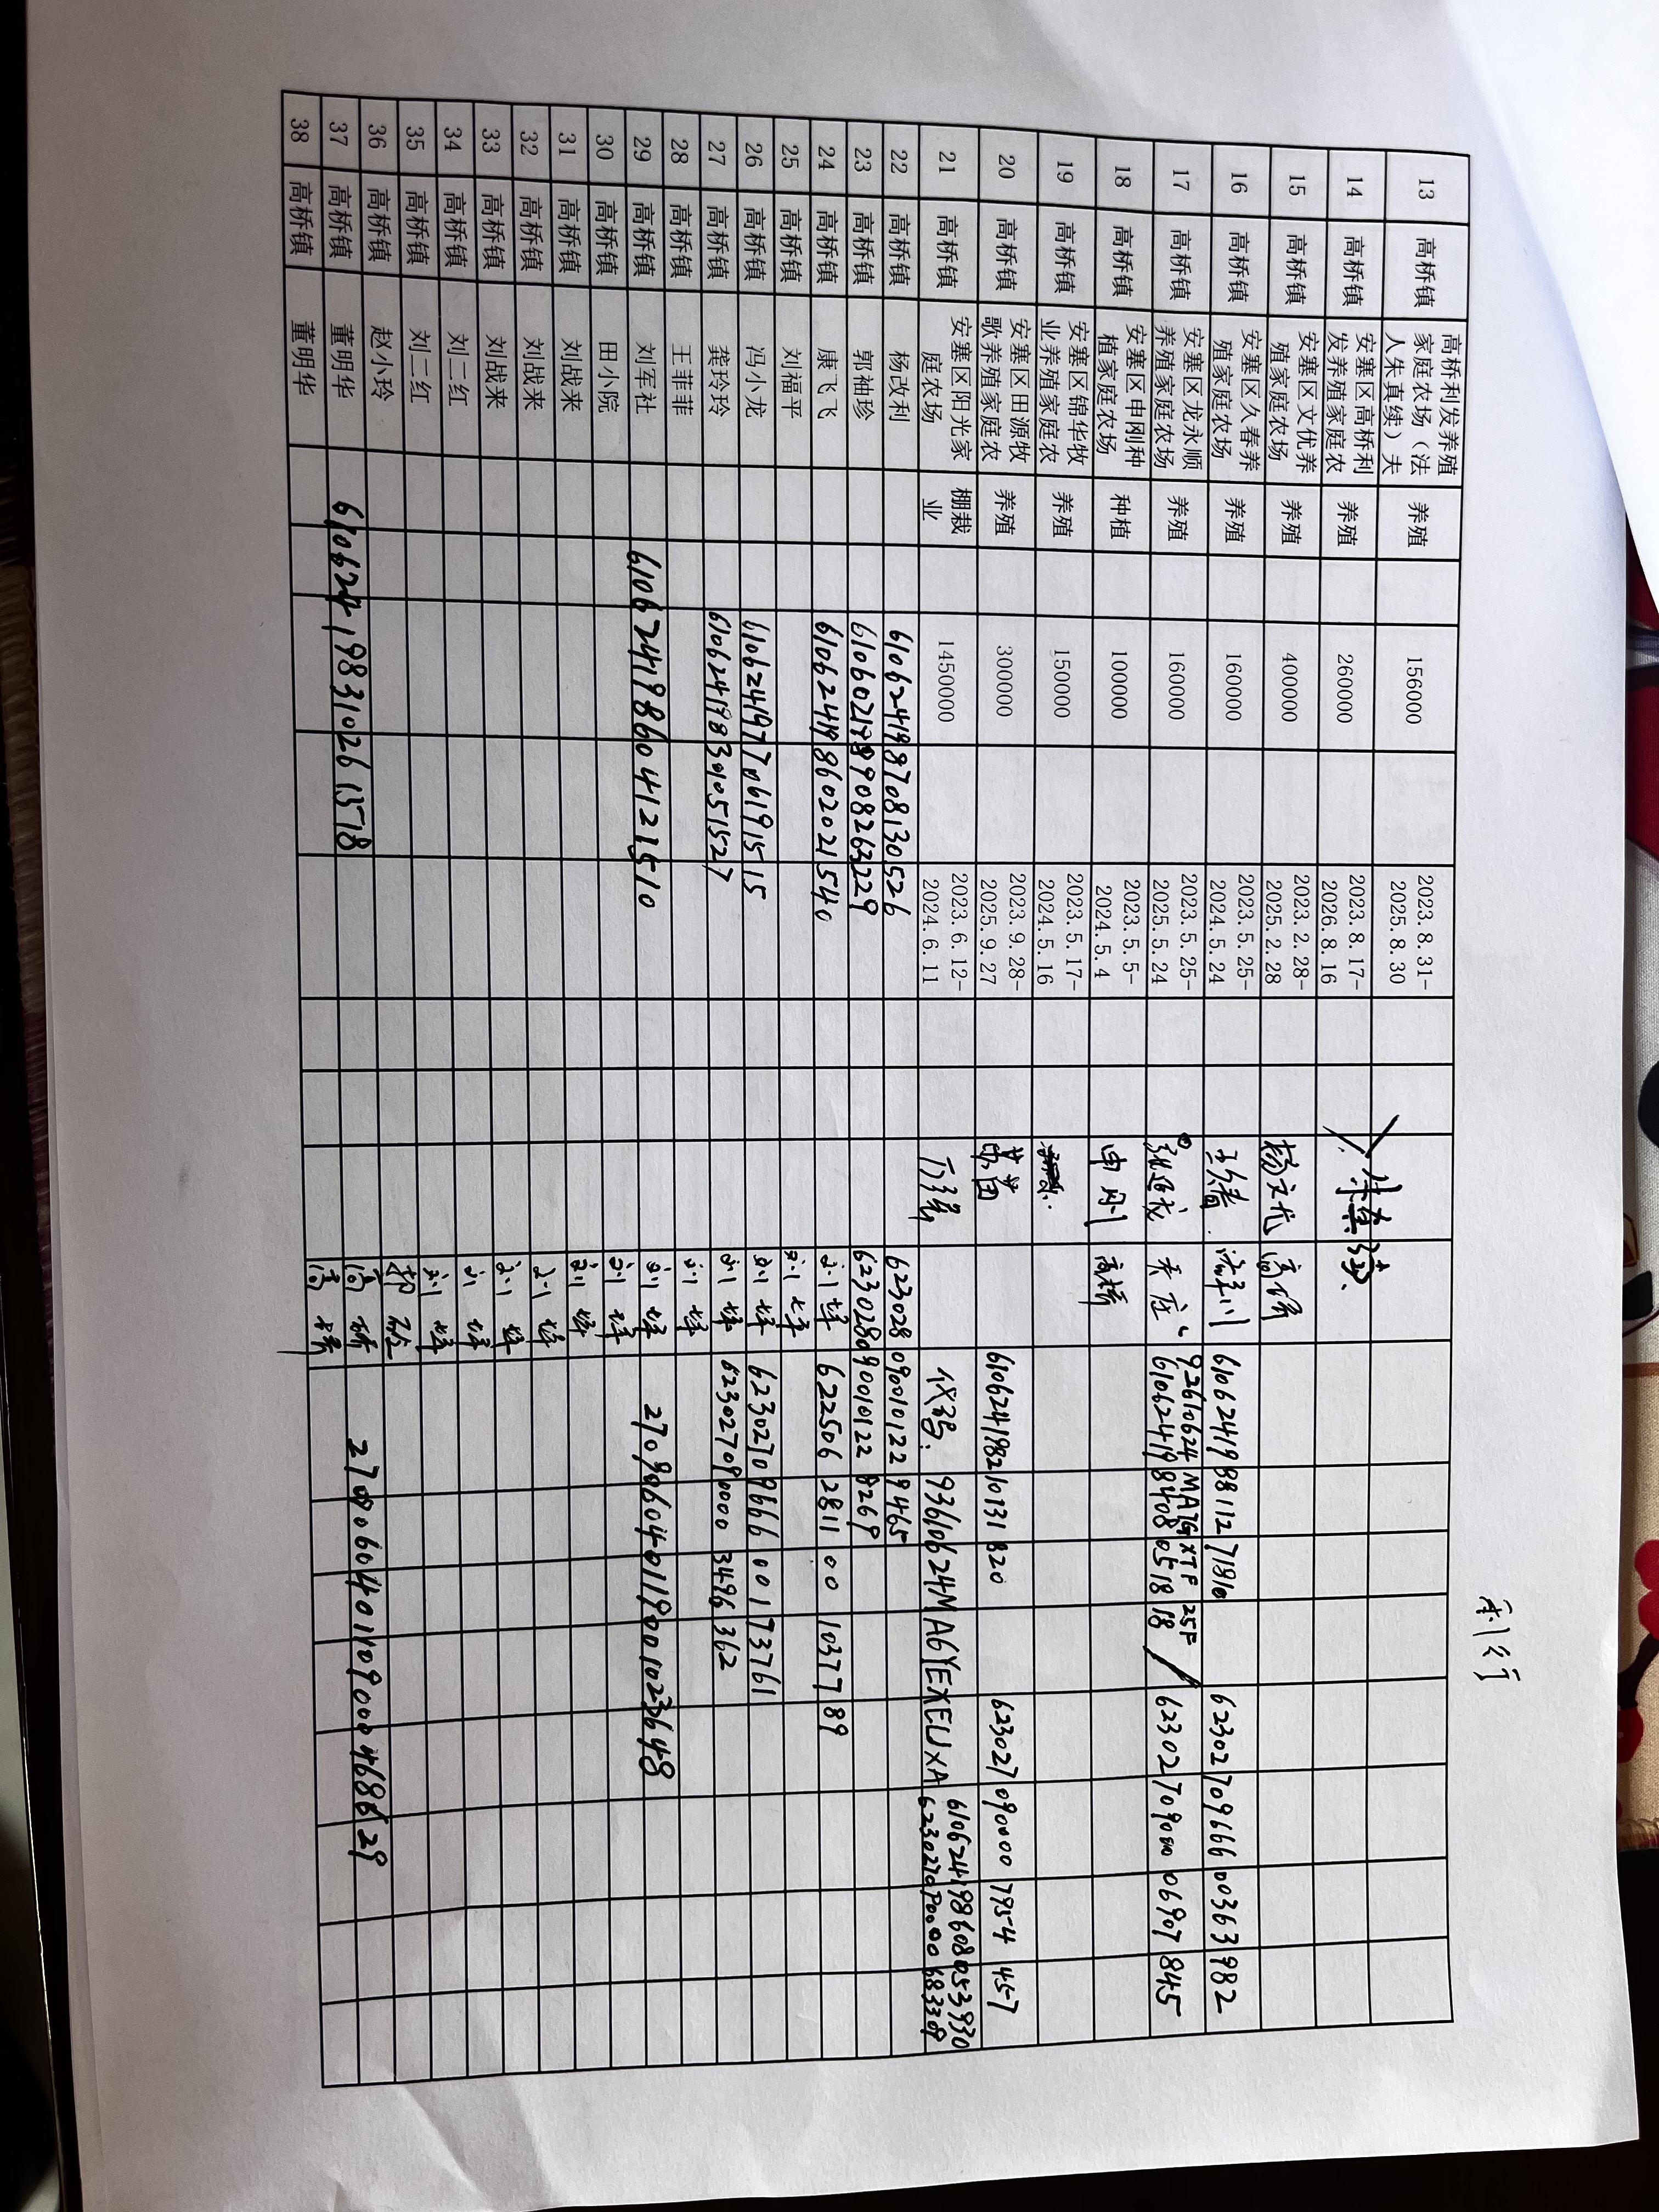 利行
13 高桥镇 高桥利发养殖
家庭农场（法
人朱真续）夫 养殖 156000 2023.8.31-
2025.8.30
14 高桥镇 安塞区高桥利
发养殖家庭农 养殖 260000 2023.8.17-
2026.8.16 朱真续
15 高桥镇 安塞区文优养
殖家庭农场 养殖 400000 2023.2.28-
2025.2.28 杨文优 高桥
16 高桥镇 安塞区久春养
殖家庭农场 养殖 160000 2023.5.25-
2024.5.24 610624198811271810 6230270966600363982
17 高桥镇 安塞区龙永顺
养殖家庭农场 养殖 160000 2023.5.25-
2025.5.24 92610624MA7GXTF25F
610624198408051818 6230270900006907845
18 高桥镇 安塞区申刚种
植家庭农场 种植 100000 2023.5.5-
2024.5.4 申刚 高桥
19 高桥镇 安塞区锦华牧
业养殖家庭农 养殖 150000 2023.5.17-
2024.5.16
20 高桥镇 安塞区田源牧
歌养殖家庭农 养殖 300000 2023.9.28-
2025.9.27 610624198210131820 6230270900007954457
21 高桥镇 安塞区阳光家
庭农场 棚栽
业 1450000 2023.6.12-
2024.6.11 代码: 93610624MA6YEXEUXA 610624198608053930
22 高桥镇 杨改利 610624198708130526 6230280900101229465
23 高桥镇 郭袖珍 6230280900101228269
24 高桥镇 康飞飞 610624198602021540 刘坪 6225062811001037789
25 高桥镇 刘福平 刘坪
26 高桥镇 冯小龙 610624197706191515 刘坪 6230270966600173761
27 高桥镇 龚玲玲 刘坪 6230270900003496362
28 高桥镇 王菲菲 刘坪
29 高桥镇 刘军社 610624198604121510 刘坪 270906040119001023648
30 高桥镇 田小院 刘坪
31 高桥镇 刘战来 刘坪
32 高桥镇 刘战来 刘坪
33 高桥镇 刘战来 刘坪
34 高桥镇 刘二红 刘坪
35 高桥镇 刘二红 刘坪
36 高桥镇 赵小玲
37 高桥镇 董明华 610624198310261578 高桥
38 高桥镇 董明华 高桥